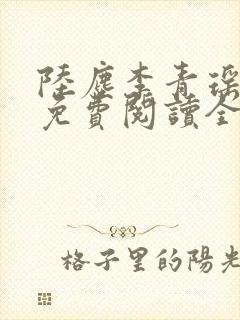 陸塵李青瑤
免費閱讀全
格子里的陽光